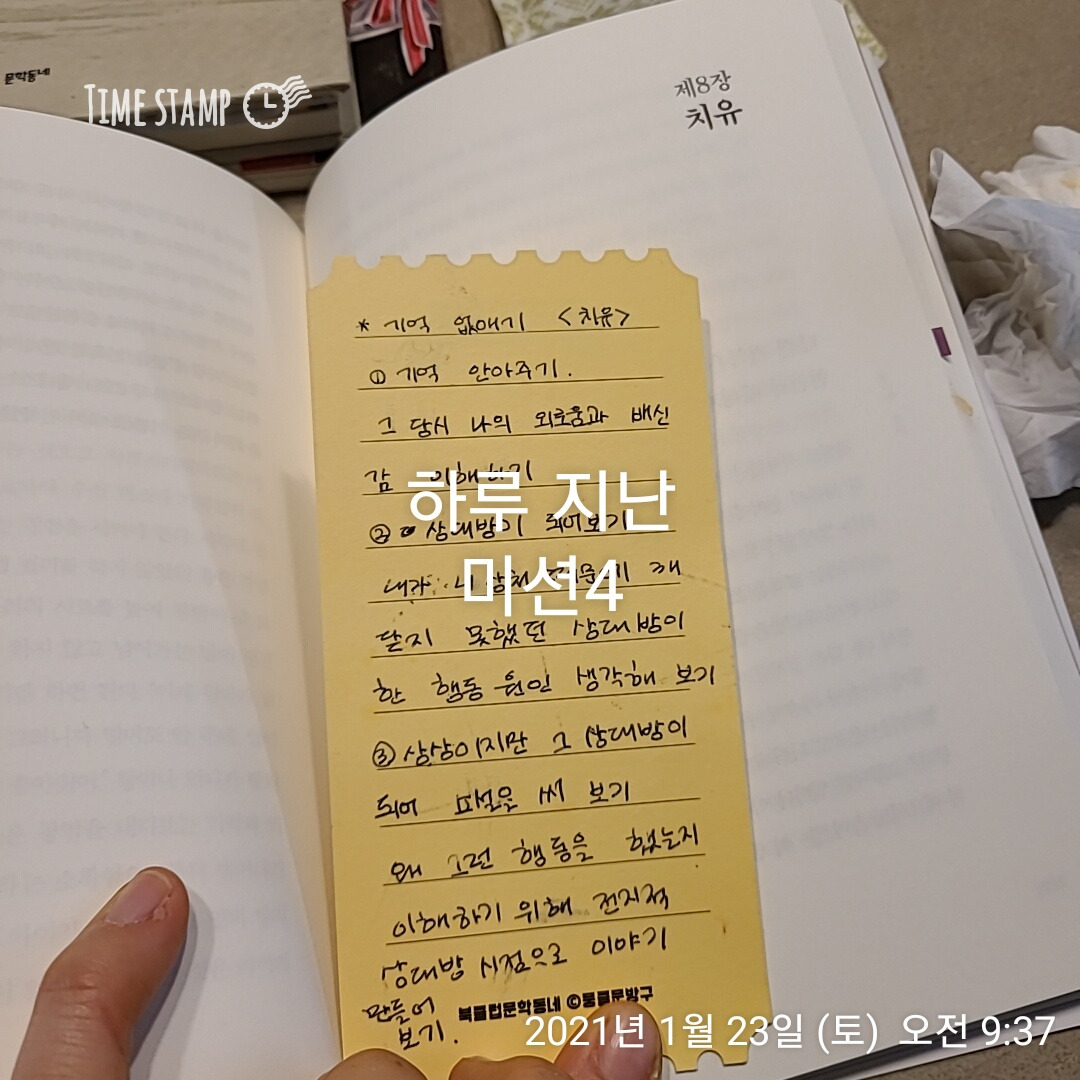 문학동네
TIME STAMP
제8장
치유
* 기억 없애기 <치유>
① 기억 안아주기.
그 당시 나의 외로움과 배신
감 이해하기
② 상대방이 되어보기
내가 내 상처 때문에 깨
닫지 못했던 상대방이
한 행동 원인 생각해 보기
③ 상상이지만 그 상대방이
되어 소설을 써 보기
왜 그런 행동을 했는지
이해하기 위해 전지적
상대방 시점으로 이야기
만들어
보기.
북클럽문학동네 ©뭉클문방구
하루 지난
미션4
2021년 1월 23일 (토) 오전 9:37